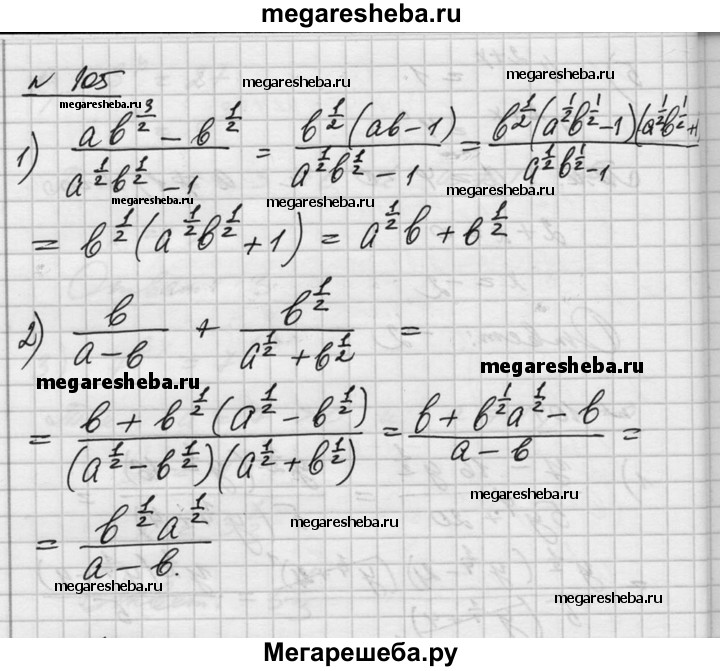 megaresheba.ru
N 105
megaresheba.ru megaresheba.ru megaresheba.ru
1) (ab^(3/2) - b^(1/2)) / (a^(1/2)b^(1/2) - 1) = b^(1/2)(ab-1) / (a^(1/2)b^(1/2) - 1) = b^(1/2)(a^(1/2)b^(1/2)-1)(a^(1/2)b^(1/2)+1) / (a^(1/2)b^(1/2)-1)
megaresheba.ru megaresheba.ru megaresheba.ru
= b^(1/2)(a^(1/2)b^(1/2)+1) = a^(1/2)b + b^(1/2)
2) b / (a-b) + b^(1/2) / (a^(1/2) + b^(1/2)) =
megaresheba.ru megaresheba.ru
= (b + b^(1/2)(a^(1/2) - b^(1/2))) / ((a^(1/2) - b^(1/2))(a^(1/2) + b^(1/2))) = (b + b^(1/2)a^(1/2) - b) / (a - b) =
megaresheba.ru
= b^(1/2)a^(1/2) / (a - b.)
megaresheba.ru
megaresheba.ru megaresheba.ru
Мегарешеба.ру